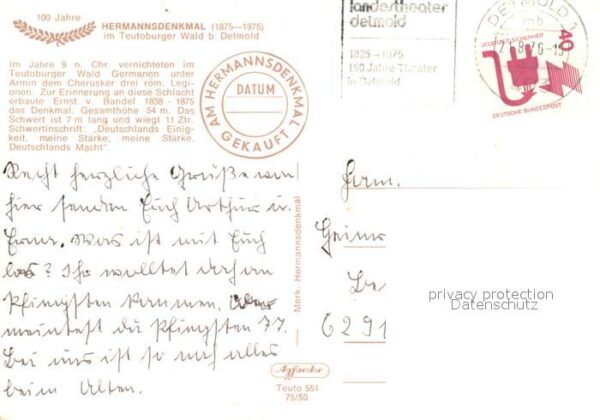 100 Jahre
HERMANNSDENKMAL (1875—1975)
im Teutoburger Wald b. Detmold
Im Jahre 9 n. Chr. vernichteten im
Teutoburger Wald Germanen unter
Armin dem Cherusker drei röm. Legi-
onen. Zur Erinnerung an diese Schlacht
erbaute Ernst v. Bandel 1838 - 1875
das Denkmal. Gesamthöhe 54 m. Das
Schwert ist 7 m lang und wiegt 11 Ztr.
Schwertinschrift: „Deutschlands Einig-
keit, meine Stärke, meine Stärke,
Deutschlands Macht".
AM HERMANNSDENKMAL
DATUM
GEKAUFT
landestheater
detmold
1825-1975
150 Jahre Theater
in Detmold
DETMOLD 1
mb
76-15
JEDERZEIT SICHERHEIT
40
DEUTSCHE BUNDESPOST
Recht herzliche Grüße von
hier senden Euch Arthur u.
Erna. Was ist mit Euch
los? Ihr wolltet doch an
Pfingsten kommen. Aber
meintest du Pfingsten 77.
Bei uns ist so noch alles
beim Alten.
Fam.
Heinr
Be
6291
privacy protection
Datenschutz
Merk. Hermannsdenkmal
Agfacolor
Teuto 551
75/50